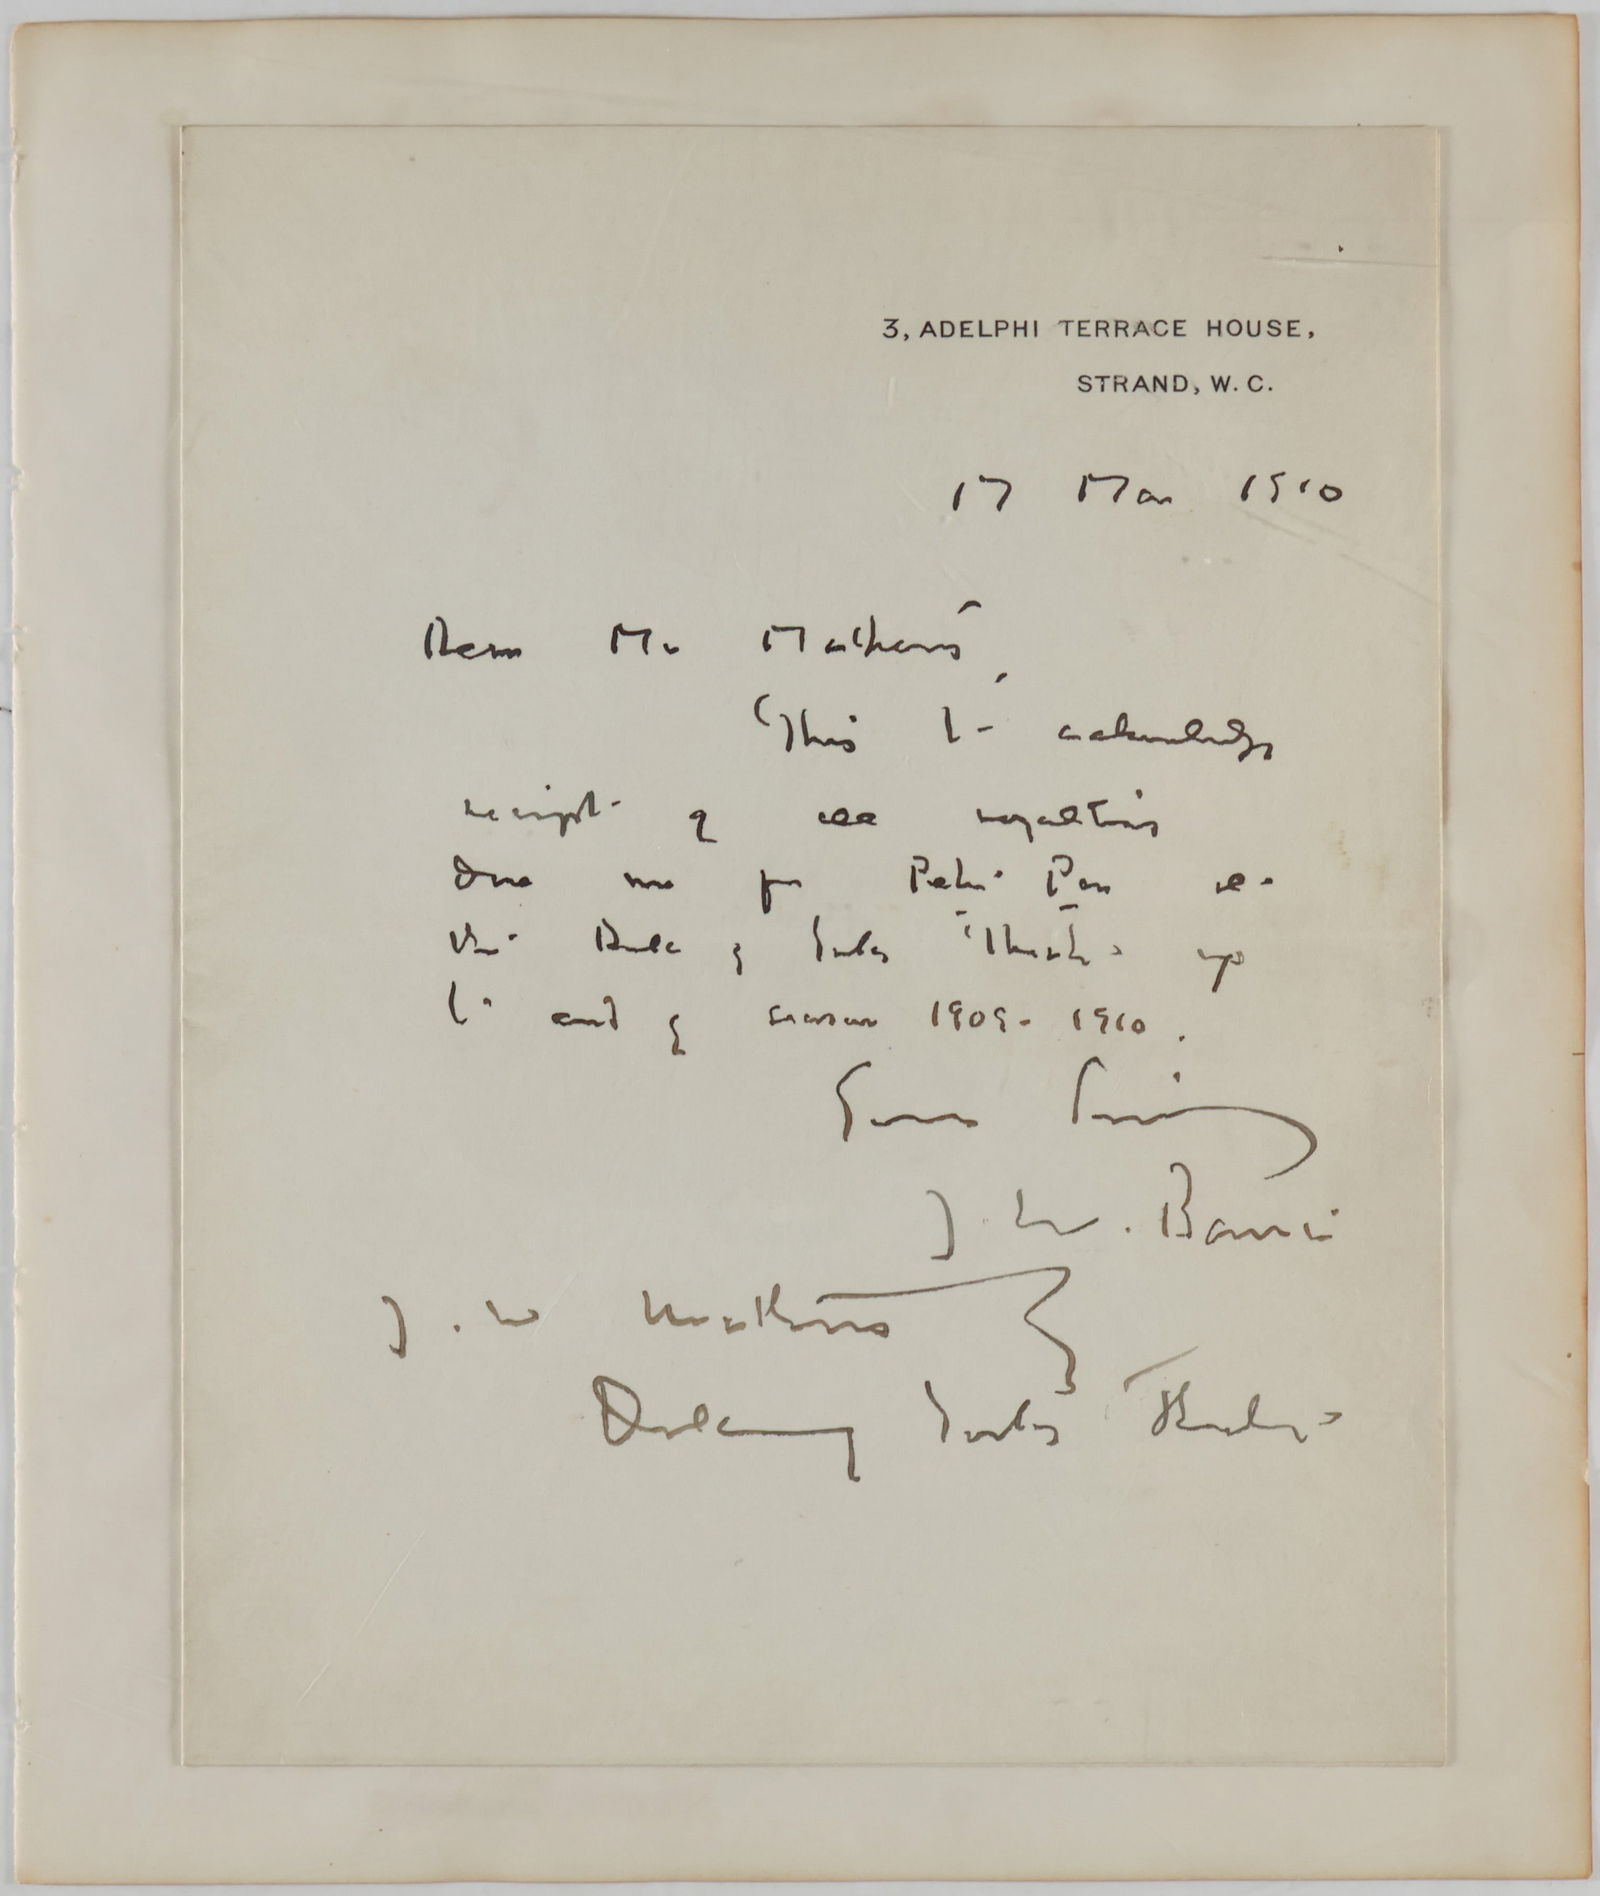 3, ADELPHI TERRACE HOUSE,
STRAND, W. C.
17 Mar 1910
Dear Mr Mathews,
This to acknowledge
receipt of all royalties
due me for Peter Pan at
the Duke of Yorks Theatre up
to end of season 1909-1910.
Yours Sincerely
J. M. Barrie
J. W Mathews
Duke of Yorks Theatre